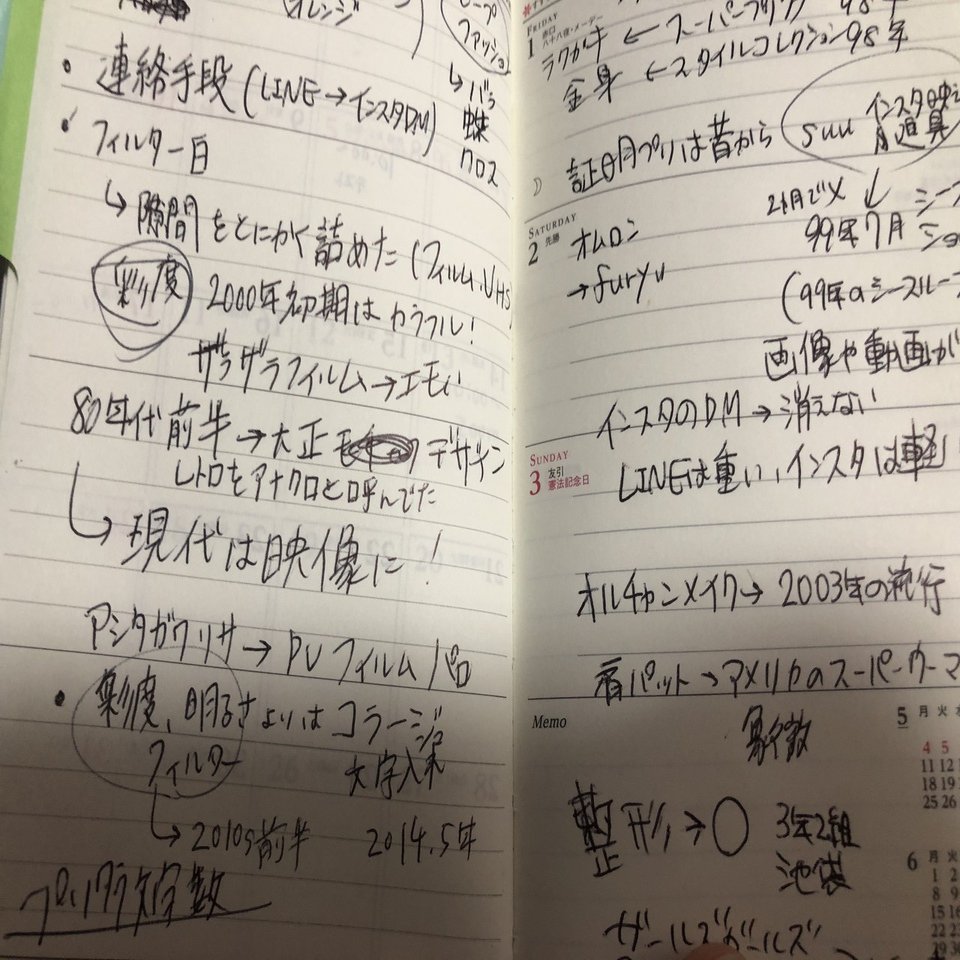 オレンジ
・連絡手段(LINE→インスタDM)
フィルター白
↳隙間をとにかく詰めた(フィルム、VHS
彩度 2000年初期はカラフル!
ザラザラフィルム→エモい
80年代前半→大正モ デザイン
レトロをアナクロと呼んでた
↳現代は映像に!
アシダガワリサ→PVフィルム
・彩度、明るさよりはコラージュ
フィルター 文字入れ
↳2010s前半 2014.5年
文字数
ープ
ファッショ
↳バラ
蝶
クロス
FRIDAY
1 赤口
八十八夜・メーデー
ラクガキ←スーパープリクラ 98年
全身←スタイルコレクション98年
証明プリは昔から suu インスタ映え
道具
SATURDAY
2 先勝
オムロン
→furyu
99年7月
(99年のシースルー
画像や動画が
インスタのDM→消えない
SUNDAY
3 友引
憲法記念日
LINEは重い、インスタは軽
オルチャンメイク→2003年の流行
肩パット→アメリカのスーパーウーマ
象徴
Memo
整形→○ 3年2組
池袋
ガールズ
5 月 火
4 5
11 12
18 19
25 26
6 月 火
1 2
8 9
15 16
22 23
29 30